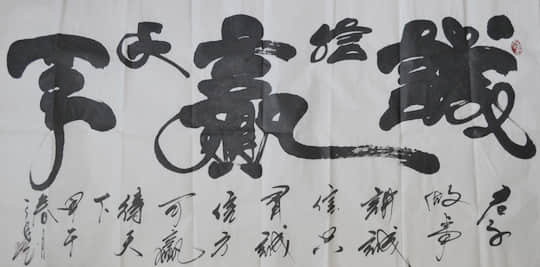 誠信贏天下
君子
做事
講誠
信只
有誠
信方
可贏
得天
下
甲午
春月